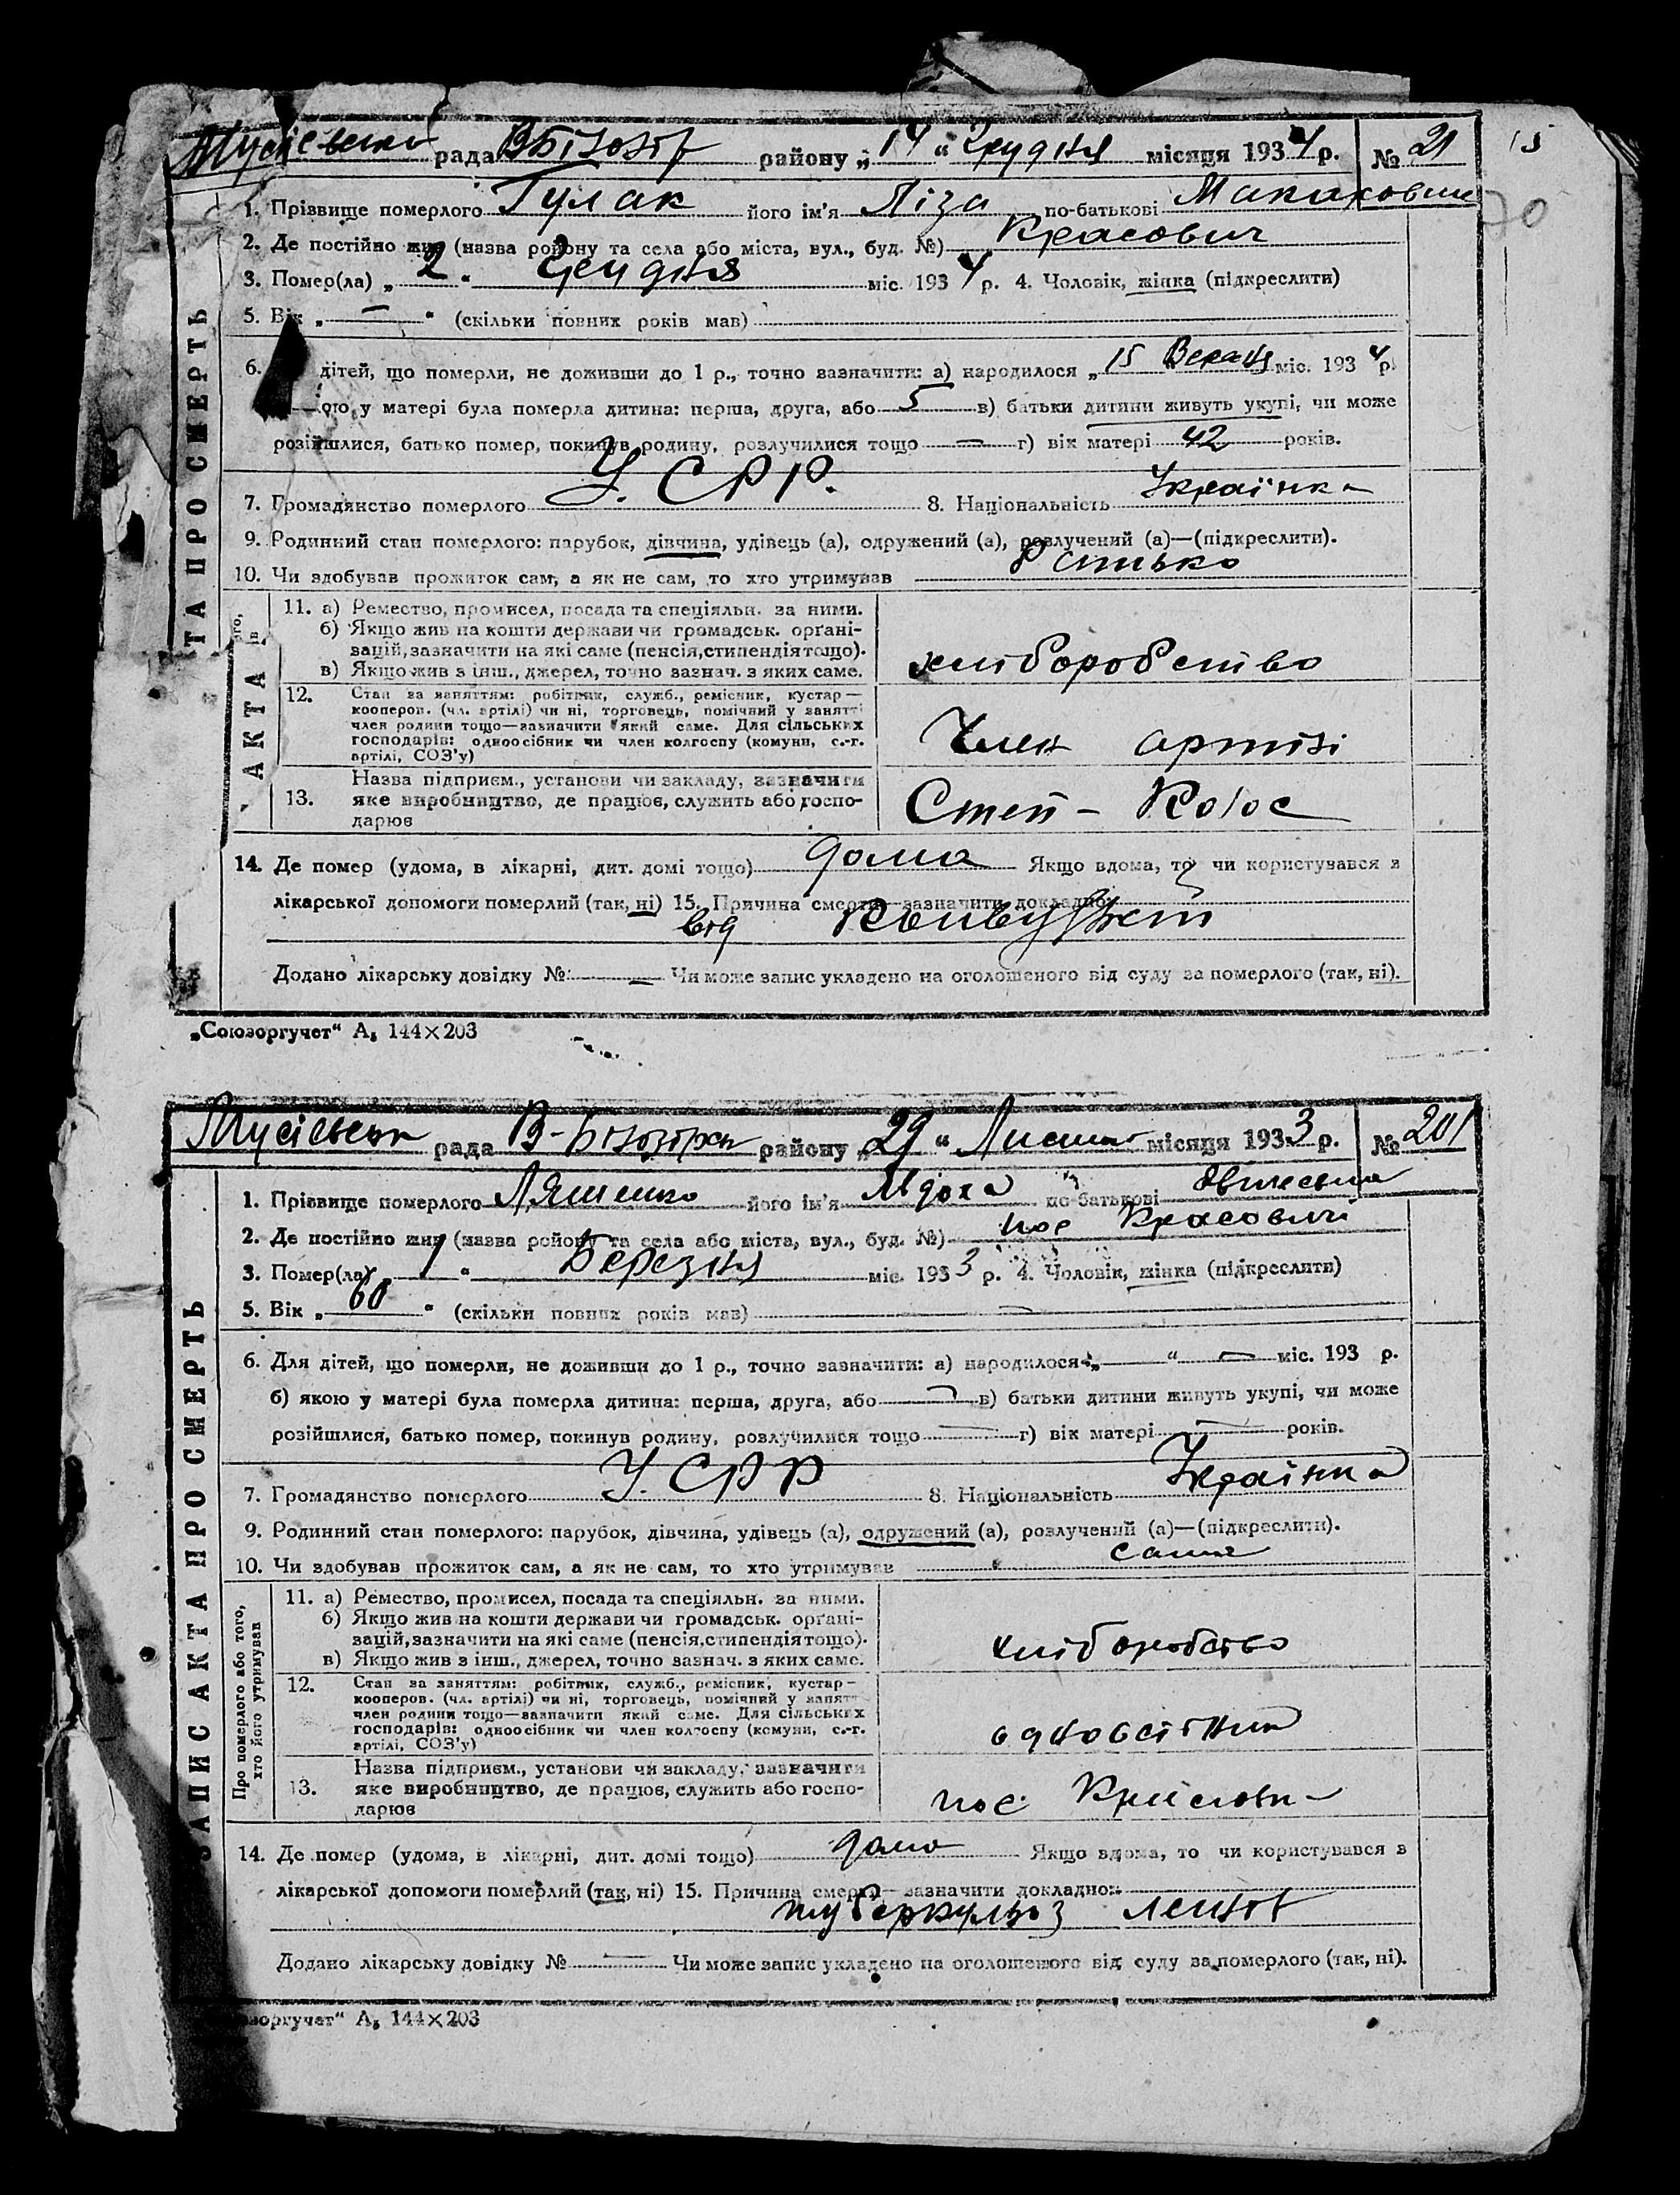 рада ВБілозір району „14“ Грудня місяця 1934 р. № 21
15
1. Прізвище померлого Гулак його ім'я Ліза по-батькові
70
2. Де постійно жив (назва району та села або міста, вул., буд. №) Красович
3. Помер(ла) „2“ міс. 1934 р. 4. Чоловік, жінка (підкреслити)
5. Вік „—“ (скільки повних років мав)
6. дітей, що померли, не доживши до 1 р., точно зазначити: а) народилося „15 Вересня міс. 1934 р.
ою у матері була померла дитина: перша, друга, або 5 в) батьки дитини живуть укупі, чи може
розійшлися, батько помер, покинув родину, розлучилися тощо — г) вік матері 42 років.
7. Громадянство померлого У.СРР. 8. Національність Українка
9. Родинний стан померлого: парубок, дівчина, удівець (а), одружений (а), розлучений (а)—(підкреслити).
10. Чи здобував прожиток сам, а як не сам, то хто утримував
11. а) Ремество, промисел, посада та спеціяльн. за ними.
б) Якщо жив на кошти держави чи громадськ. орґані-
зацій, зазначити на які саме (пенсія, стипендія тощо).
в) Якщо жив з інш., джерел, точно зазнач. з яких саме.
хліборобство
12. Стан за заняттям: робітник, служб., ремісник, кустар—
кооперов. (чл. артілі) чи ні, торговець, помічний у занятті
член родини тощо—зазначити який саме. Для сільських
господарів: одноосібник чи член колгоспу (комуни, с.-г.
артілі, СОЗ'у)
Член артілі
13. Назва підприєм., установи чи закладу, зазначити
яке виробництво, де працює, служить або госпо-
дарює
Степ - Колос
14. Де помер (удома, в лікарні, дит. домі тощо) дома Якщо вдома, то чи користувався з
лікарської допомоги померлий (так, ні) 15. Причина смерти—зазначити докладно:
від
Додано лікарську довідку № — Чи може запис укладено на оголошеного від суду за померлого (так, ні).
ТА ПРО СМЕРТЬ
АКТА
„Союзоргучет“ А₅ 144×203
Мусіївська рада В-Білозірки району „29“ місяця 1933 р. № 201
1. Прізвище померлого Ляшенко його ім'я по-батькові
2. Де постійно жив (назва району та села або міста, вул., буд. №) пос Красовичі
3. Помер(ла) „1“ Березня міс. 1933 р. 4. Чоловік, жінка (підкреслити)
5. Вік „60“ (скільки повних років мав) —
6. Для дітей, що померли, не доживши до 1 р., точно зазначити: а) народилося „—“ — міс. 193 р.
б) якою у матері була померла дитина: перша, друга, або — в) батьки дитини живуть укупі, чи може
розійшлися, батько помер, покинув родину, розлучилися тощо — г) вік матері — років.
7. Громадянство померлого У.СРР 8. Національність Українка
9. Родинний стан померлого: парубок, дівчина, удівець (а), одружений (а), розлучений (а)—(підкреслити).
10. Чи здобував прожиток сам, а як не сам, то хто утримував сама
11. а) Ремество, промисел, посада та спеціяльн. за ними.
б) Якщо жив на кошти держави чи громадськ. орґані-
зацій, зазначити на які саме (пенсія, стипендія тощо).
в) Якщо жив з інш., джерел, точно зазнач. з яких саме.
хліборобство
12. Стан за заняттям: робітник, служб., ремісник, кустар—
кооперов. (чл. артілі) чи ні, торговець, помічний у занятті
член родини тощо—зазначити який саме. Для сільських
господарів: одноосібник чи член колгоспу (комуни, с.-г.
артілі, СОЗ'у)
одноосібник
13. Назва підприєм., установи чи закладу, зазначити
яке виробництво, де працює, служить або госпо-
дарює
пос.
14. Де помер (удома, в лікарні, дит. домі тощо) дома Якщо вдома, то чи користувався з
лікарської допомоги померлий (так, ні) 15. Причина смерти—зазначити докладно:
туберкульоз легенів
Додано лікарську довідку № — Чи може запис укладено на оголошеного від суду за померлого (так, ні).
ЗАПИС АКТА ПРО СМЕРТЬ
Про померлого або того,
хто його утримував
зоргучет“ А₅ 144×203